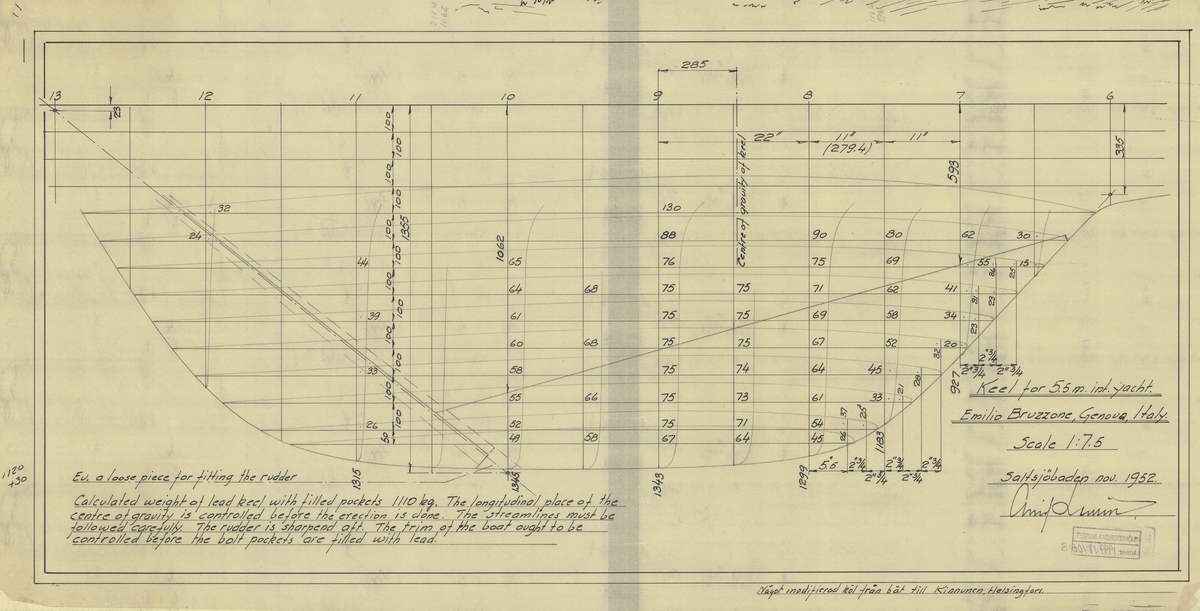 285
13 12 11 10 9 8 7 6
23
22" 11" 11"
(279.4)
593
335
Centre of gravity of keel
100 100 100 100 100 100 50
100 100 100 100 100 100
1355
1062
32
24
44
39
33
26
65
64 68
61
60 68
58
55 66
52
49 58
130
88
76
75 75
75 75
75 75
75 74
75 73
75 71
67 64
90 80 62 30
75 69 55 15
71 62 41
69 58 34
67 52 20
64 45
61 33
54
45
36 25
31 23
23
32
28
21
37 25
26
2"3/4
2"3/4 2"3/4
927
1183
1315
1345
1343
1299
5"5 2"3/4 2"3/4 2"3/4 2"3/4 2"3/4
Keel for 5.5 m. int. yacht.
Emilio Bruzzone, Genova, Italy.
Scale 1:7.5
Saltsjöbaden nov. 1952.
1120
+30
Ev. a loose piece for fitting the rudder
Calculated weight of lead keel with filled pockets 1110 kg. The longitudinal place of the
centre of gravity is controlled before the erection is done. The streamlines must be
followed carefully. The rudder is sharpend aft. The trim of the boat ought to be
controlled before the bolt pockets are filled with lead.
Något modifierad köl från båt till Kinnunen, Helsingfors.